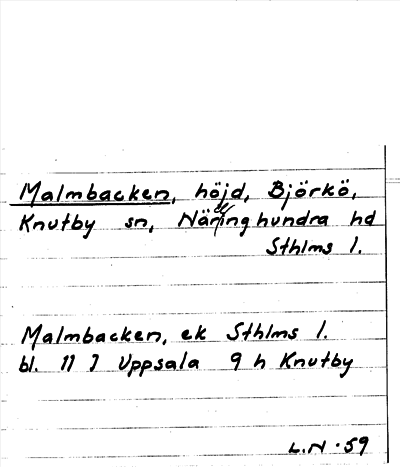 Malmbacken, höjd, Björkö,
Knutby sn, Närdinghundra hd
Sthlms l.
Malmbacken, ek Sthlms l.
bl. 11 I Uppsala 9 h Knutby
L.N - 59